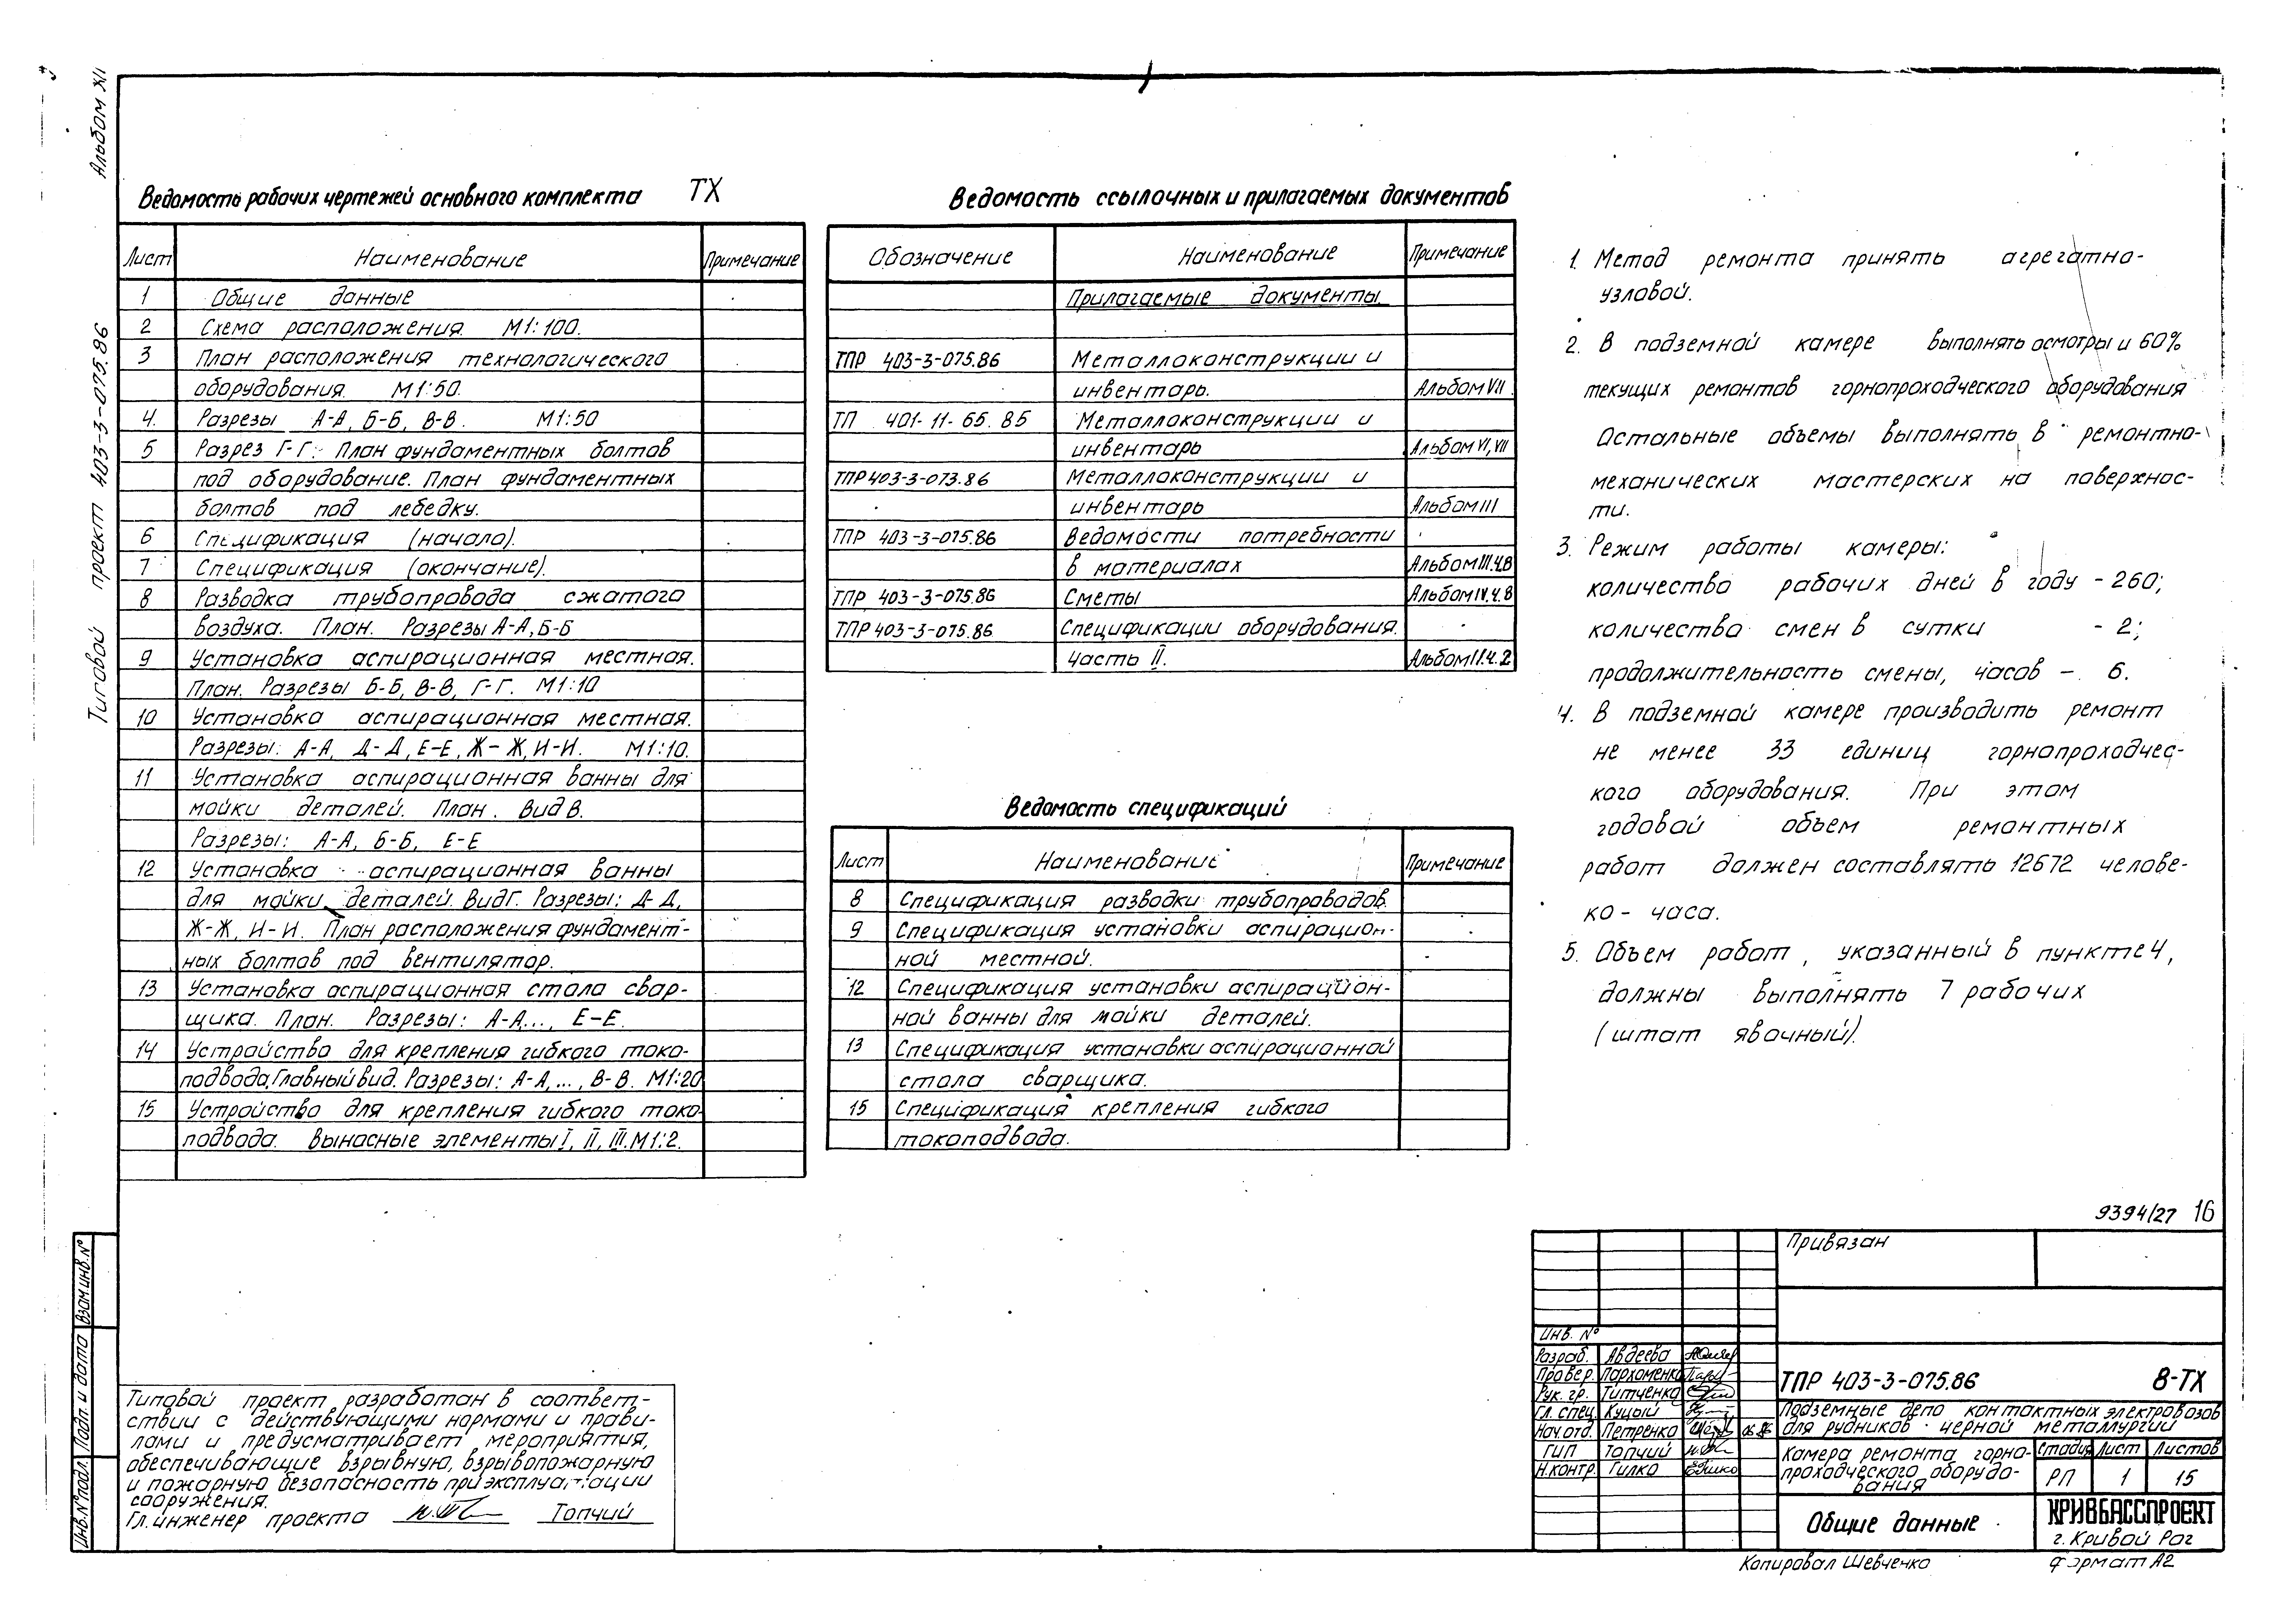 Альбом XII
Типовой проект 403-3-075.86
Ведомость рабочих чертежей основного комплекта ТХ
Лист Наименование Примечание
1 Общие данные
2 Схема расположения М1:100.
3 План расположения технологического
оборудования. М1:50.
4. Разрезы А-А, Б-Б, В-В. М1:50
5 Разрез Г-Г. План фундаментных болтов
под оборудование. План фундаментных
болтов под лебедку.
6 Спецификация (начало).
7 Спецификация (окончание).
8 Разводка трубопровода сжатого
воздуха. План. Разрезы А-А, Б-Б
9 Установка аспирационная местная.
План. Разрезы Б-Б, В-В, Г-Г. М1:10
10 Установка аспирационная местная.
Разрезы: А-А, Д-Д, Е-Е, Ж-Ж, И-И. М1:10.
11 Установка аспирационная ванны для
мойки деталей. План. Вид В.
Разрезы: А-А, Б-Б, Е-Е
12 Установка аспирационная ванны
для мойки деталей. Вид Г. Разрезы: Д-Д,
Ж-Ж, И-И. План расположения фундамент-
ных болтов под вентилятор.
13 Установка аспирационная стола свар-
щика. План. Разрезы: А-А..., Е-Е.
14 Устройство для крепления гибкого токо-
подвода. Главный вид. Разрезы: А-А,..., В-В. М1:20
15 Устройство для крепления гибкого токо-
подвода. Выносные элементы I, II, III. М1:2.
Ведомость ссылочных и прилагаемых документов
Обозначение Наименование Примечание
Прилагаемые документы.
ТПР 403-3-075.86 Металлоконструкции и
инвентарь. Альбом VII
ТП 401-11-65.85 Металлоконструкции и
инвентарь Альбом VI, VII
ТПР 403-3-073.86 Металлоконструкции и
инвентарь Альбом III
ТПР 403-3-075.86 Ведомости потребности
в материалах Альбом III.ч.8
ТПР 403-3-075.86 Сметы Альбом IV.ч.8
ТПР 403-3-075.86 Спецификации оборудования.
Часть II. Альбом II.ч.2
Ведомость спецификаций
Лист Наименование Примечание
8 Спецификация разводки трубопроводов.
9 Спецификация установки аспирацион-
ной местной.
12 Спецификация установки аспирацион-
ной ванны для мойки деталей.
13 Спецификация установки аспирационной
стола сварщика.
15 Спецификация крепления гибкого
токоподвода.
1. Метод ремонта принять агрегатно-
узловой.
2. В подземной камере выполнять осмотры и 60%
текущих ремонтов горнопроходческого оборудования
Остальные объемы выполнять в ремонтно-
механических мастерских на поверхнос-
ти.
3. Режим работы камеры:
количество рабочих дней в году - 260;
количество смен в сутки - 2;
продолжительность смены, часов - 6.
4. В подземной камере производить ремонт
не менее 33 единиц горнопроходчес-
кого оборудования. При этом
годовой объем ремонтных
работ должен составлять 12672 челове-
ко-часа.
5. Объем работ, указанный в пункте 4,
должны выполнять 7 рабочих
(штат явочный).
9394/27 16
Привязан
Инв. №
Разраб. Авдеева
Провер. Пархоменко
Рук. гр. Титченко
Гл. спец. Куцый
Нач. отд. Петренко 06.86
ГИП Топчий
Н.контр. Гилко
ТПР 403-3-075.86 8-ТХ
Подземные депо контактных электровозов
для рудников черной металлургии
Камера ремонта горно-
проходческого оборудо-
вания
Стадия Лист Листов
РП 1 15
Общие данные
КРИВБАССПРОЕКТ
г. Кривой Рог
Копировал Шевченко Формат А2
Типовой проект разработан в соответ-
ствии с действующими нормами и прави-
лами и предусматривает мероприятия,
обеспечивающие взрывную, взрывопожарную
и пожарную безопасность при эксплуатации
сооружения.
Гл. инженер проекта Топчий
Инв.№ подл. Подп. и дата Взам.инв.№